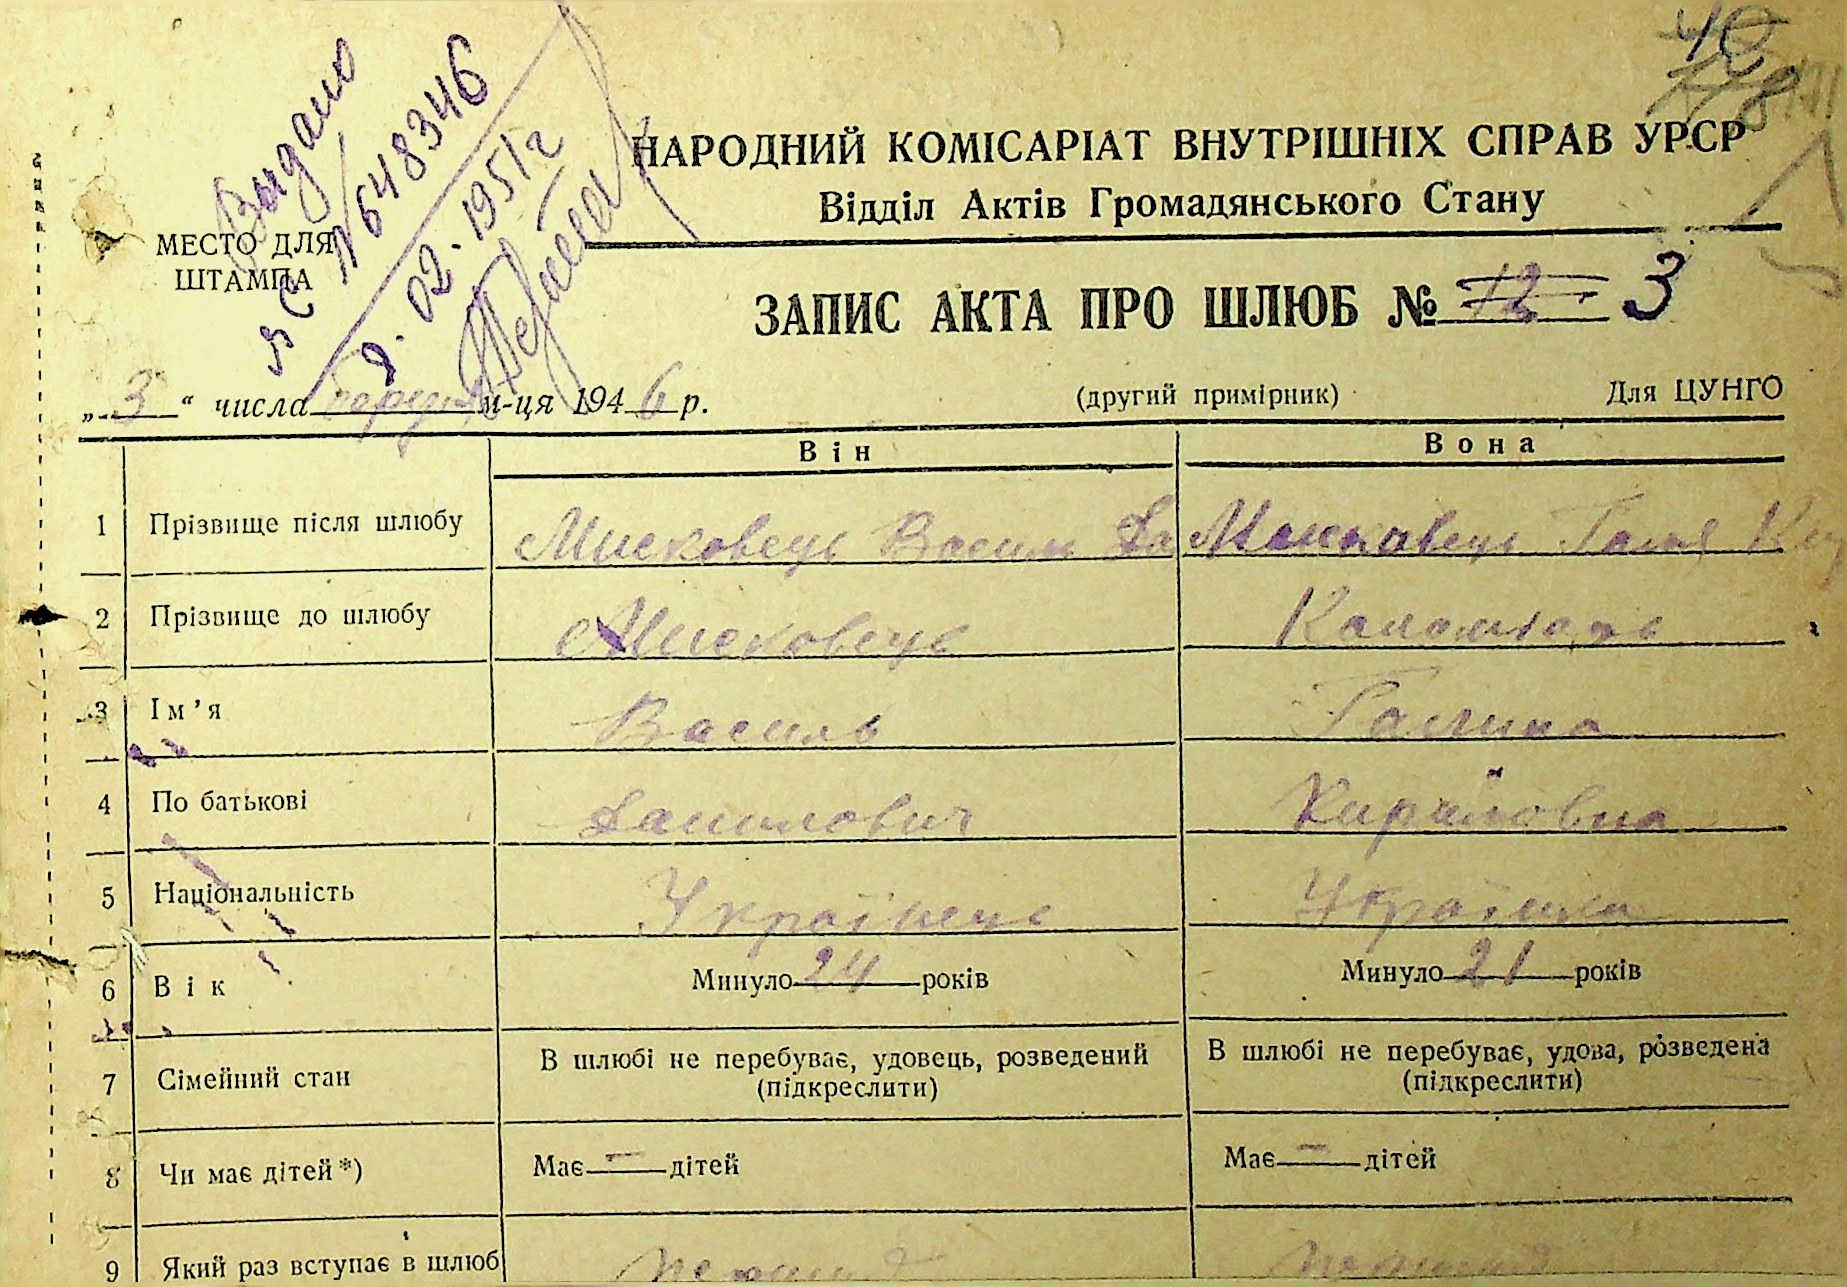 40
118
Выдано
ЯС № 648346
8.02.1951 г
НАРОДНИЙ КОМІСАРІАТ ВНУТРІШНІХ СПРАВ УРСР
Відділ Актів Громадянського Стану
МЕСТО ДЛЯ
ШТАМПА
ЗАПИС АКТА ПРО ШЛЮБ № 12 3
„3“ числа м-ця 1946 р.
(другий примірник)
Для ЦУНГО
Він Вона
1 Прізвище після шлюбу Мисковець Василь Да Мисковець Галя
2 Прізвище до шлюбу Мисковець
3 Ім’я Василь Галина
4 По батькові Данилович Кириловна
5 Національність Українець Українка
6 Вік Минуло 24 років Минуло 21 років
7 Сімейний стан В шлюбі не перебуває, удовець, розведений (підкреслити) В шлюбі не перебуває, удова, розведена (підкреслити)
8 Чи має дітей*) Має — дітей Має — дітей
9 Який раз вступає в шлюб